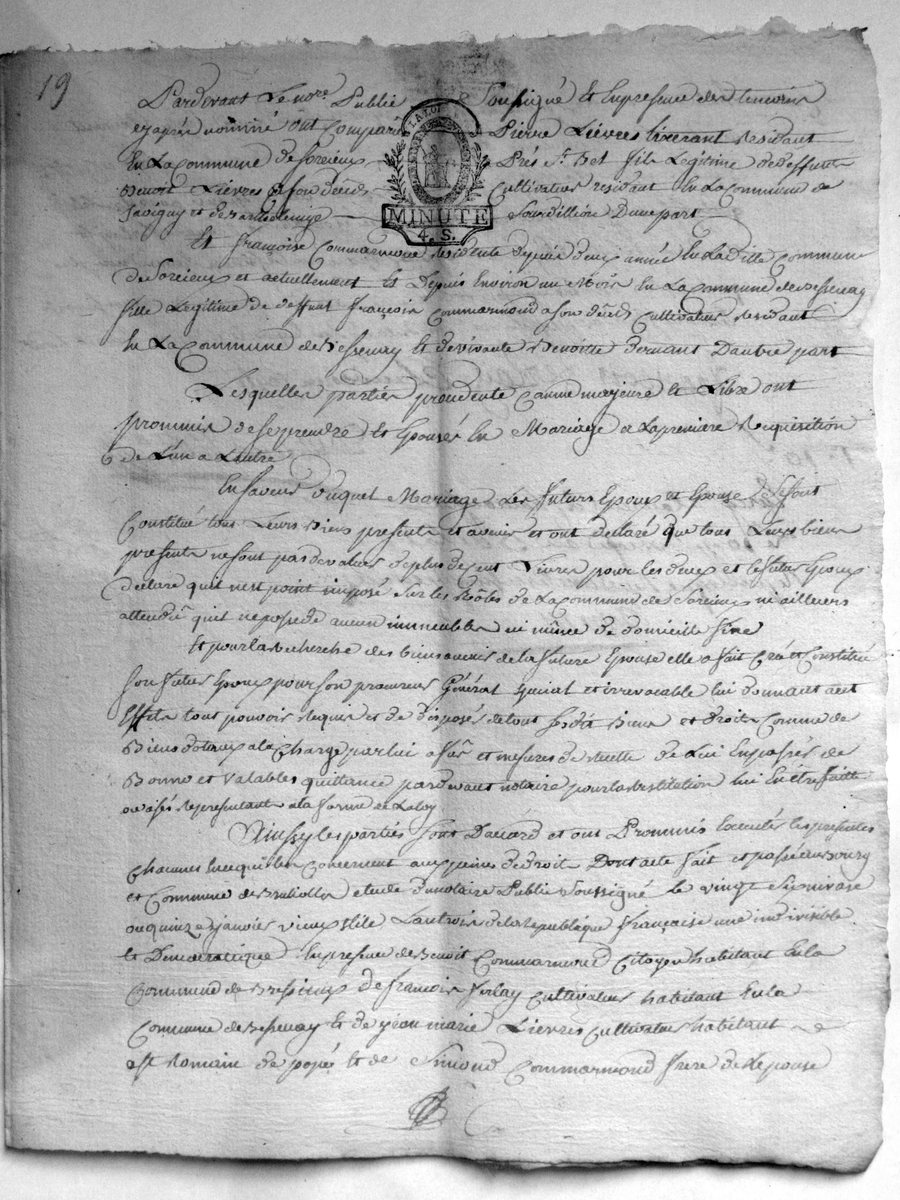 19
Pardevant Le no.re Public Soussigné Et En presence des temoins
cy apres nommé ont Comparu Pierre Lièvres tixerant residant
En La Commune de Sorcieux Près St. Bel fils Legitime de deffunt
Benoit Lièvres a son décéds Cultivateur residant En La Commune de
Savigny et de Une part
LA LOI
MINUTE
4. S.
Et françoise Commarmond residente depuis deux année En La ditte Commune
de Sorcieux et actuellement Et Depuis Environ un Mois En La Commune de Bessenay
fille Legitime de deffunt françois Commarmond a son décéds Cultivateur residant
En La Commune de Bessenay Et de vivante Benoitte Dautre part
Lesquelles parties procedente Comme majeure Et Libre ont
prommis de se prendre Et Epousér En Mariage a La premiere Requisition
de L'un a L'autre
En faveur duquel Mariage Les futurs Epoux et Epouse Se sont
Constitué tous Leurs biens presents et avenir et ont déclaré que tous Leurs biens
presents ne sont pas de valeur de plus de cent Livres pour les deux et le futur Epoux
declaré quil nest point imposé Sur les Rôles de La Commune de Sorcieux ni ailleurs
attendû quil ne possede aucun immeubles ni même de domicile fixe
Et pour la Recherche des biens avenir de la future Epouse elle a fait Créé et Constitué
Son futur Epoux pour Son procureur Général special et irrevocable lui donnant a cet
Effet tout pouvoir requis et de disposér de tout Sesdit Biens et droit Comme de
Biens dotaux a la Charge par lui a fur et mesure de recette de Lui En passér de
Bonne et valables quittance pardevant notaire pour la restitution lui En Etre faitte
ou a ses representant a la forme de La loy
Ainsy les parties Sont Daccord et ont Prommis les presentes
Chacunes En ce qui les Concernent aux peines de droit Dont acte fait et passé au bourg
et Commune de Brullolles etude du notaire Public Soussigné Le vingt Six nivose
ou quinze janvier vieux Stile Lan trois de la Republique française une indivisible
Et Democratique En presence de Benoit Commarmond Citoyen habitant En la
Commune de de francois Cultivateur habitant En la
Commune de Bessenay Et de jean marie Lièvres Cultivateur habitant
a St Romain de popey Et de Simond Commarmond frere de L'epouse